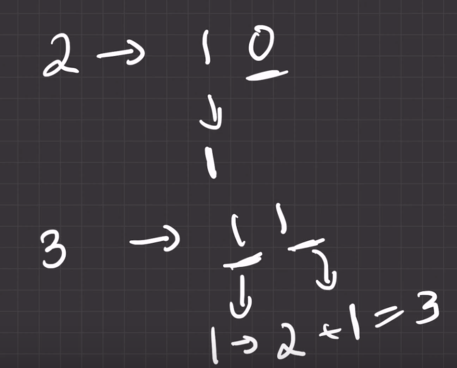 2 → 1 0
↓
1
3 → 1 1
↓ ↓
1 → 2 + 1 = 3